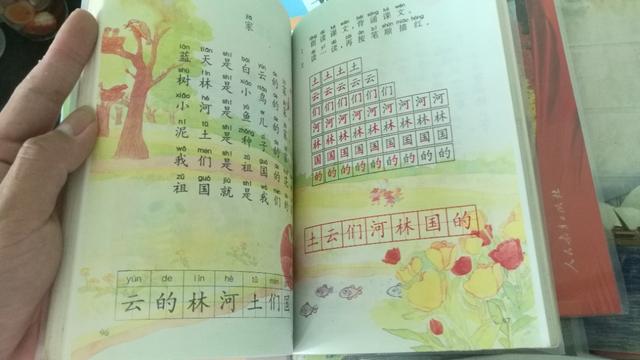 jiā
家
lán tiān shì bái yún de
蓝天是白云的
shù lín shì xiǎo niǎo de
树林是小鸟的
xiǎo hé shì yú ér de
小河是鱼儿的
ní tǔ shì zhǒng zi de
泥土是种子的
wǒ men shì zǔ guó de
我们是祖国的
zǔ guó jiù shì wǒ men
祖国就是我们
yún de lín hé tǔ men
云的林河土们国
96
朗读课文，背诵课文。
读读，再按笔顺描红。
土土土土
云云云云云
们们们们们们
河河河河河河河河
林林林林林林林林
国国国国国国国国
的的的的的的的的
土云们河林国的
人民教育出版社